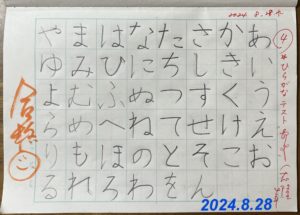 2024. 8.28
④
ひらがなテスト
あいうえお
かきくけこ
さしすせそ
たちつてと
なにぬねの
はひふへほ
まみむめも
やゆよ
らり
るれろわをん
合格
2024.8.28